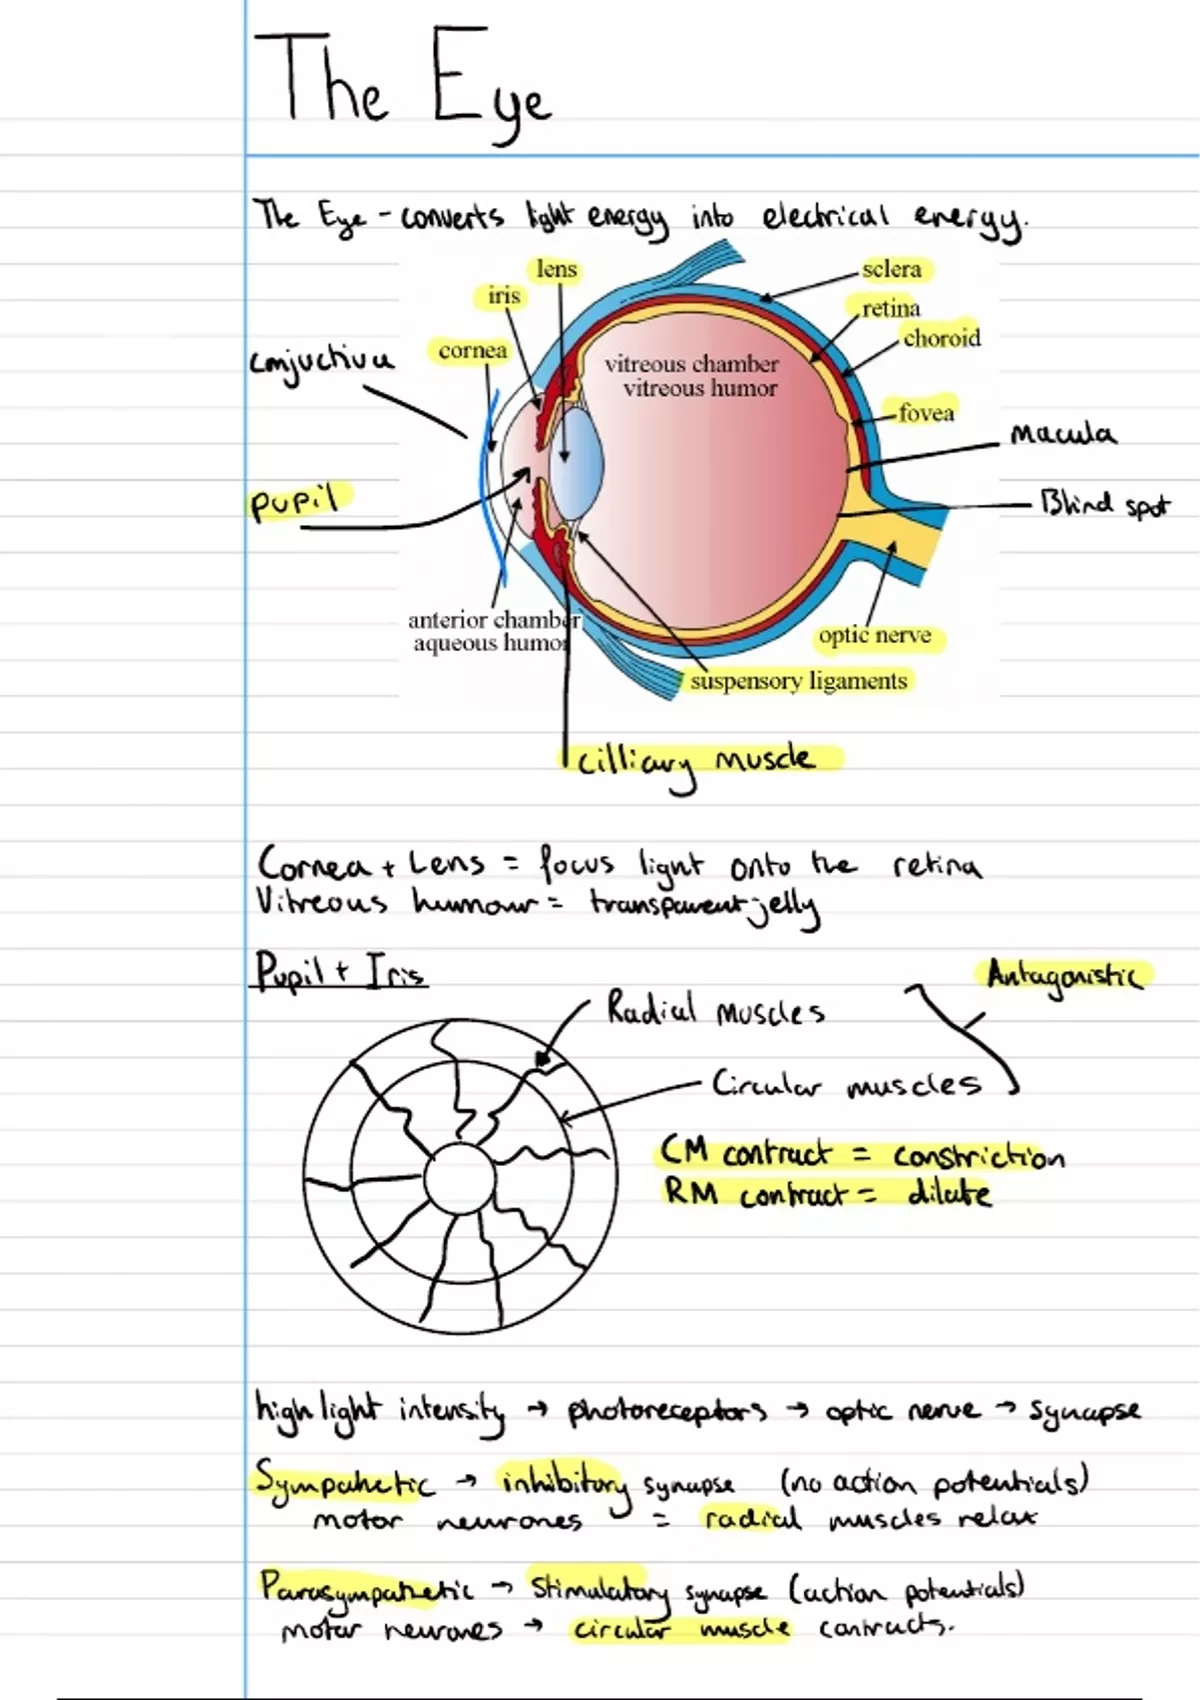 The Eye
The Eye - converts light energy into electrical energy.
lens
sclera
iris
retina
choroid
cornea
conjuctiva
vitreous chamber
vitreous humor
fovea
macula
pupil
Blind spot
anterior chamber
aqueous humor
optic nerve
suspensory ligaments
cilliary muscle
Cornea + Lens = focus light onto the retina
Vitreous humour = transparent jelly
Pupil + Iris
Antagonistic
Radial muscles
Circular muscles
CM contract = constriction
RM contract = dilate
high light intensity → photoreceptors → optic nerve → synapse
Sympathetic → inhibitory synapse (no action potentials)
motor neurones = radial muscles relax
Parasympathetic → Stimulatory synapse (action potentials)
motor neurones → circular muscle contracts.